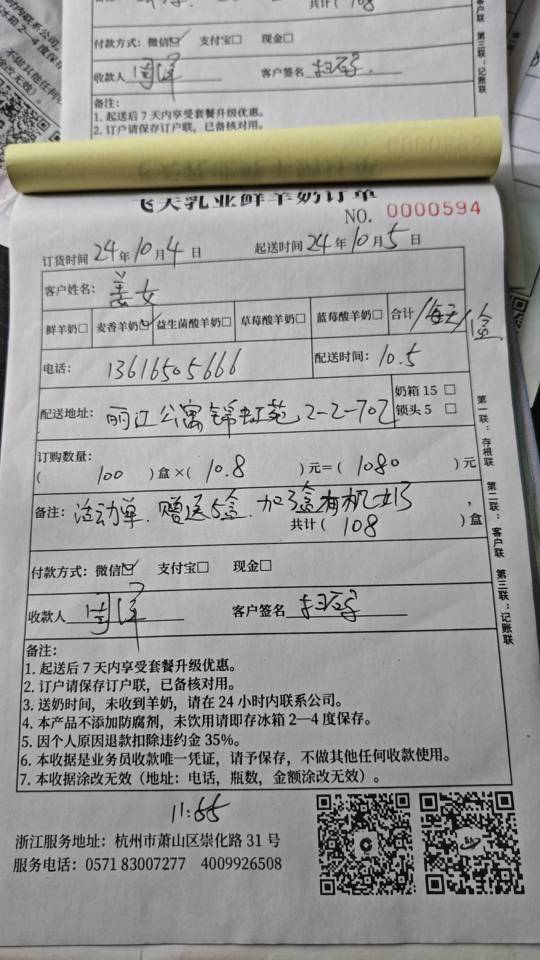 共计( 108
付款方式: 微信☑ 支付宝□ 现金□
收款人 客户签名
备注:
1. 起送后 7 天内享受套餐升级优惠。
2. 订户请保存订户联,已备核对用。
第三联:记账联
飞天乳业鲜羊奶订单
NO. 0000594
订货时间 24年10月4日 起送时间 24年10月5日
客户姓名: 美女
鲜羊奶□ 麦香羊奶☑ 益生菌酸羊奶□ 草莓酸羊奶□ 蓝莓酸羊奶□ 合计 1每天1盒
电话: 13616505666 配送时间: 10.5
配送地址: 丽江公寓锦虹苑 2-2-702 奶箱 15 □
锁头 5 □
订购数量:
( 100 )盒×( 10.8 )元=( 1080 )元
备注: 活动单. 赠送5盒. 加3盒有机奶,
共计( 108 )盒
付款方式: 微信☑ 支付宝□ 现金□
收款人 客户签名
备注:
1. 起送后 7 天内享受套餐升级优惠。
2. 订户请保存订户联,已备核对用。
3. 送奶时间,未收到羊奶,请在 24 小时内联系公司。
4. 本产品不添加防腐剂,未饮用请即存冰箱 2—4 度保存。
5. 因个人原因退款扣除违约金 35%。
6. 本收据是业务员收款唯一凭证,请予保存,不做其他任何收款使用。
7. 本收据涂改无效(地址:电话,瓶数,金额涂改无效)。
第一联:存根联 第二联:客户联 第三联:记账联
11:55
浙江服务地址: 杭州市萧山区崇化路 31 号
服务电话: 0571 83007277 4009926508